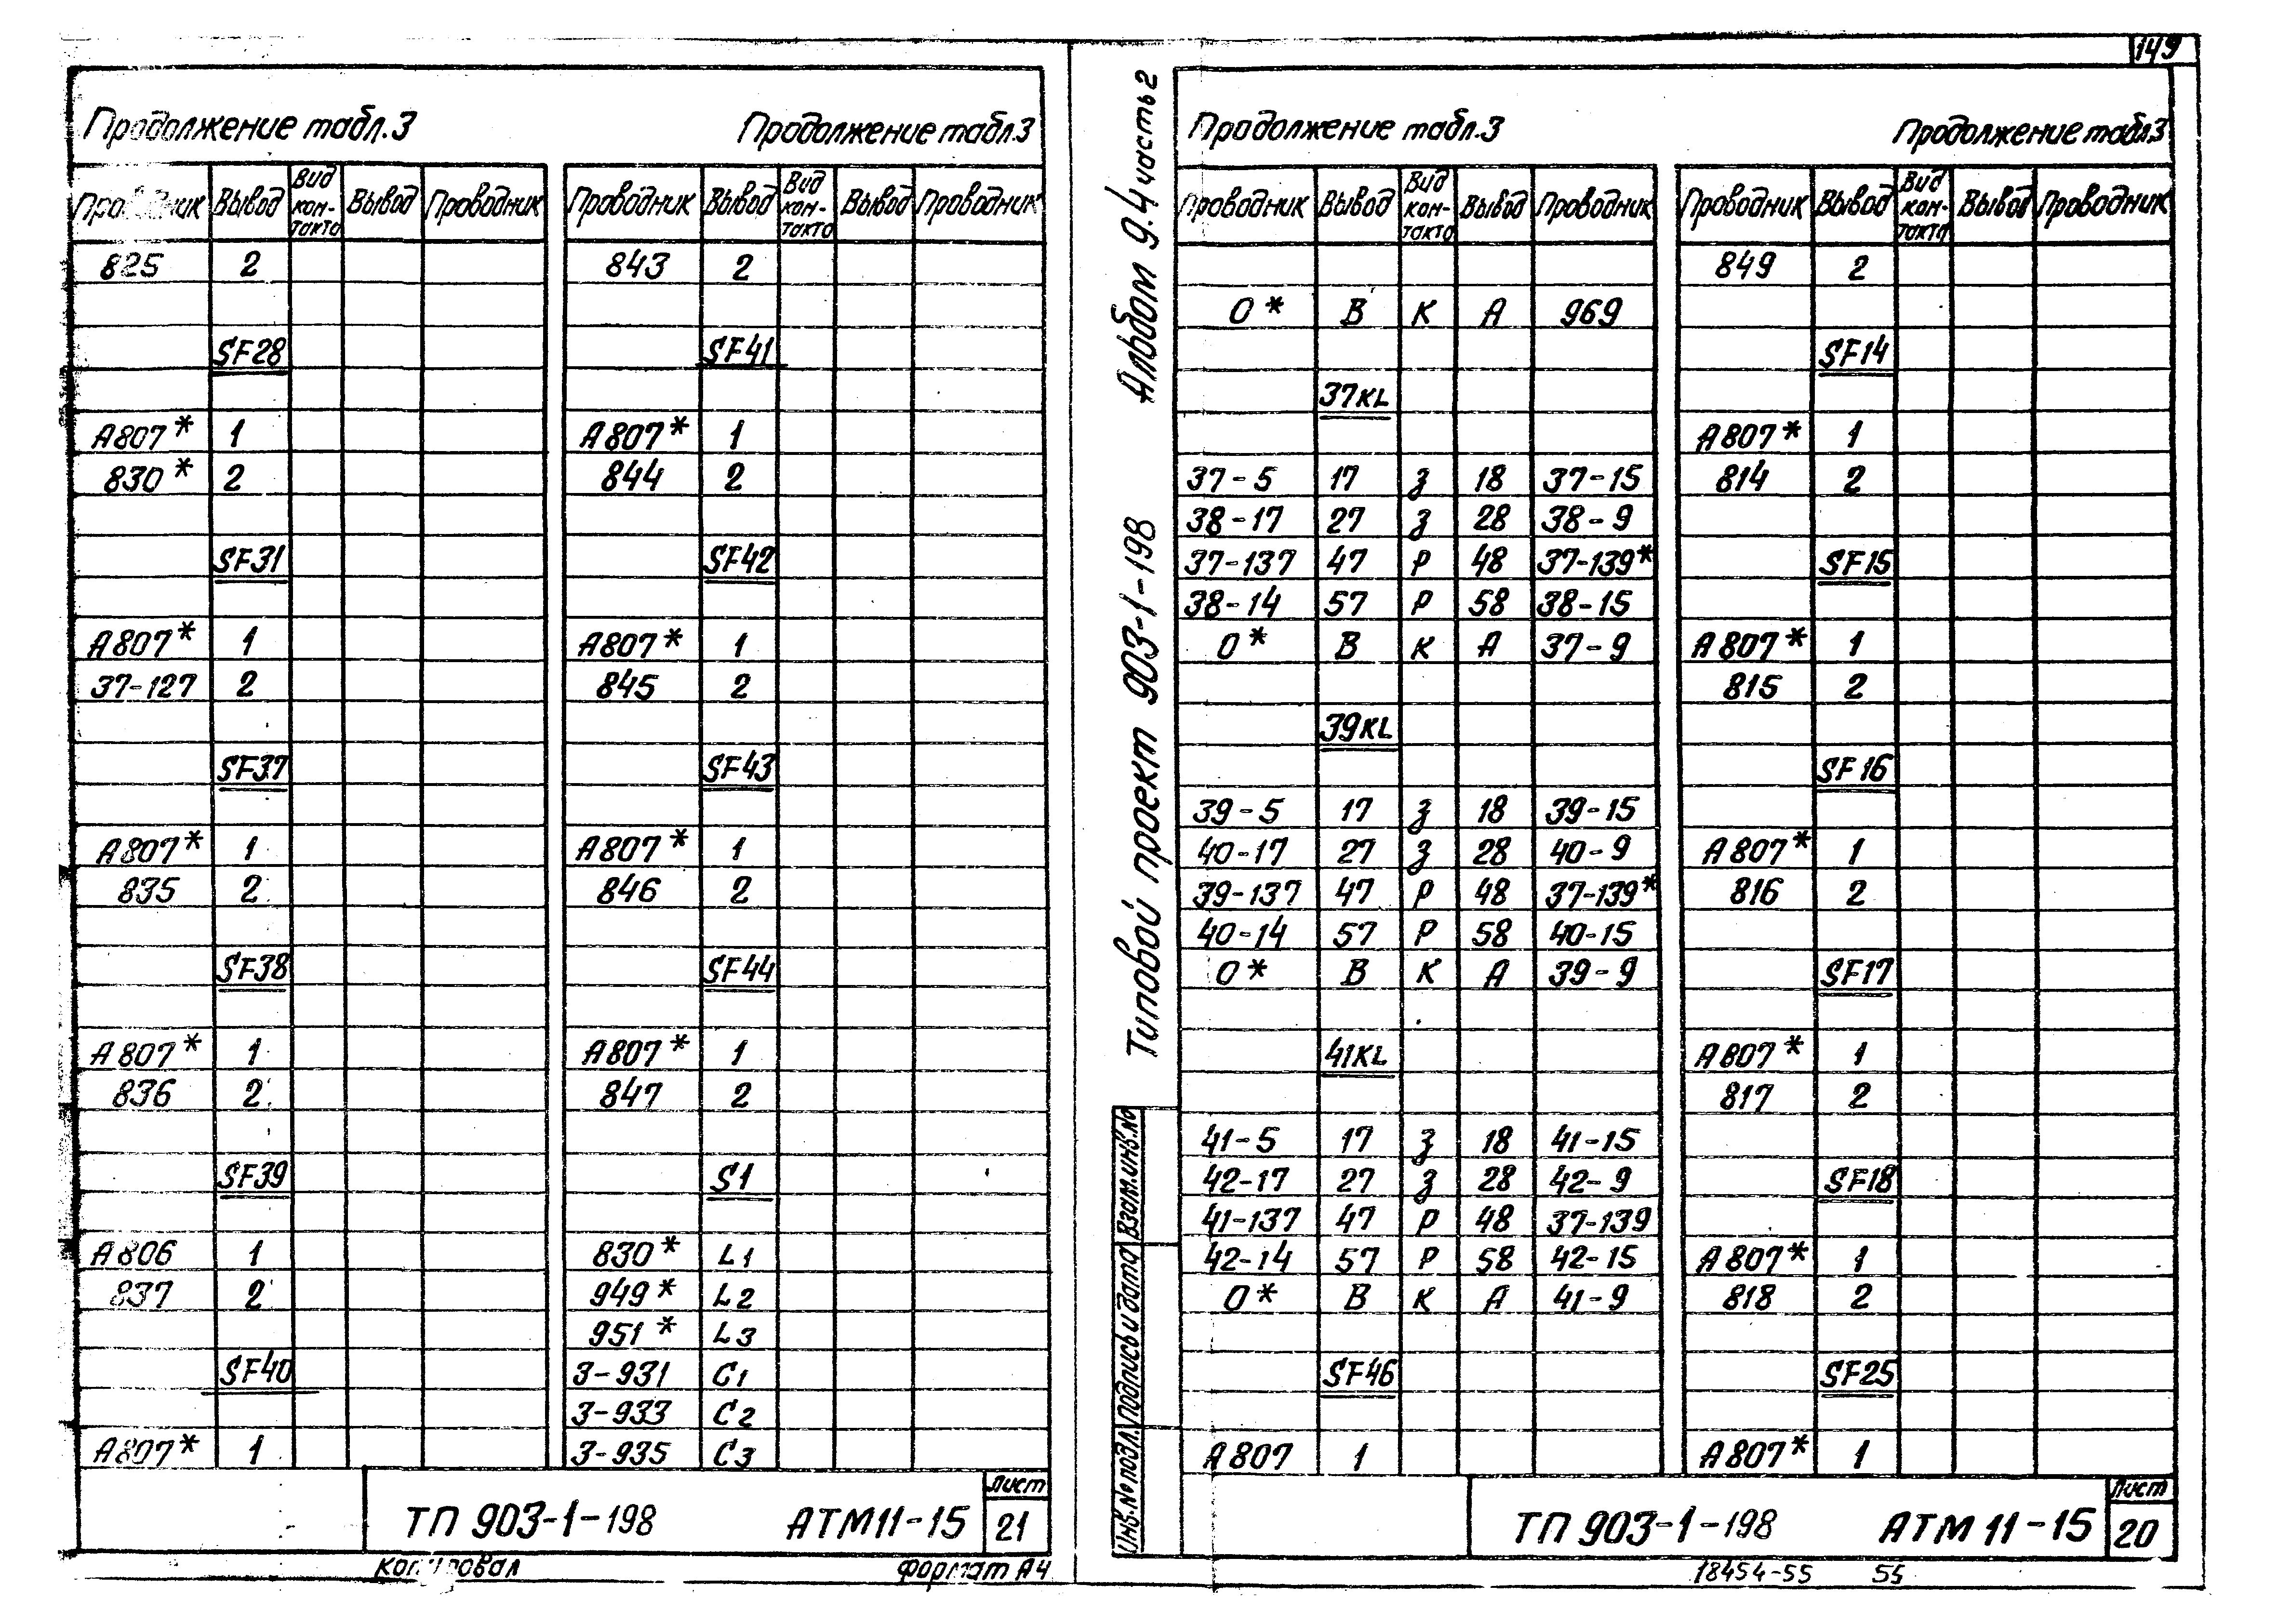 149
Продолжение табл.3
Продолжение табл.3
Проводник Вывод Вид кон-такта Вывод Проводник
Проводник Вывод Вид кон-такта Вывод Проводник
825 2
SF28
А807* 1
830* 2
SF31
А807* 1
37-127 2
SF37
А807* 1
835 2
SF38
А807* 1
836 2
SF39
А806 1
837 2
SF40
А807* 1
843 2
SF41
А807* 1
844 2
SF42
А807* 1
845 2
SF43
А807* 1
846 2
SF44
А807* 1
847 2
S1
830* L1
949* L2
951* L3
3-931 C1
3-933 C2
3-935 C3
ТП 903-1-198 АТМ11-15
Лист
21
Копировал
Формат А4
Типовой проект 903-1-198 Альбом 9.4 часть 2
Продолжение табл.3
Продолжение табл.3
Проводник Вывод Вид кон-такта Вывод Проводник
Проводник Вывод Вид кон-такта Вывод Проводник
0* В К А 969
37KL
37-5 17 З 18 37-15
38-17 27 З 28 38-9
37-137 47 Р 48 37-139*
38-14 57 Р 58 38-15
0* В К А 37-9
39KL
39-5 17 З 18 39-15
40-17 27 З 28 40-9
39-137 47 Р 48 37-139*
40-14 57 Р 58 40-15
0* В К А 39-9
41KL
41-5 17 З 18 41-15
42-17 27 З 28 42-9
41-137 47 Р 48 37-139
42-14 57 Р 58 42-15
0* В К А 41-9
SF46
А807 1
849 2
SF14
А807* 1
814 2
SF15
А807* 1
815 2
SF16
А807* 1
816 2
SF17
А807* 1
817 2
SF18
А807* 1
818 2
SF25
А807* 1
Инв.№ подл. Подпись и дата Взам.инв.№
ТП 903-1-198 АТМ 11-15
Лист
20
18454-55 55